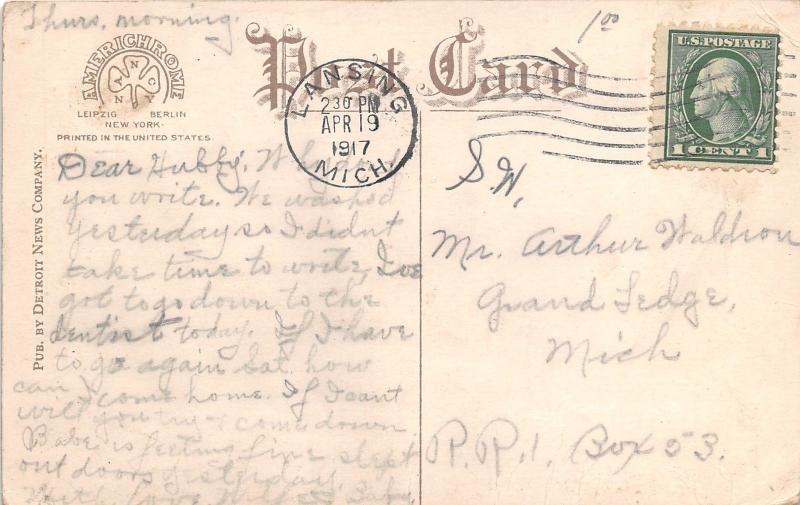 Thurs. morning.
Post Card
1.00
AMERICHROME
NANCY
LEIPZIG BERLIN
NEW YORK
PRINTED IN THE UNITED STATES.
PUB. BY DETROIT NEWS COMPANY.
LANSING
2 30 PM
APR 19
1917
MICH.
U.S. POSTAGE
1 CENT 1
Dear Hubby. Why
you write. We washed
yesterday so I didnt
take time to write, I've
got to go down to the
dentist today. If I have
to go again Sat. how
can I come home. If I cant
will you try & come down
Babe is feeling fine slept
out doors yesterday.
With love Baby
S.W.
Mr. Arthur Waldron
Grand Ledge,
Mich
R.R.1. Box 53.